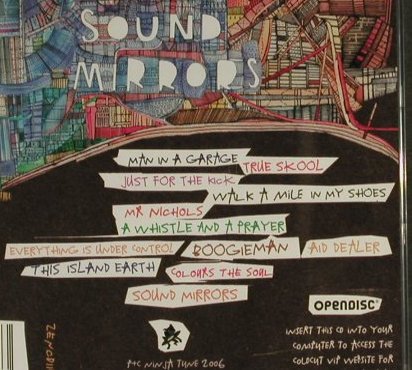 SOUND
MIRRORS
MAN IN A GARAGE
TRUE SKOOL
JUST FOR THE KICK
WALK A MILE IN MY SHOES
MR NICHOLS
A WHISTLE AND A PRAYER
EVERYTHING IS UNDER CONTROL
BOOGIEMAN
AID DEALER
THIS ISLAND EARTH
COLOURS THE SOUL
SOUND MIRRORS
OPENDISC
INSERT THIS CD INTO YOUR
COMPUTER TO ACCESS THE
COLDCUT VIP WEBSITE FOR
P+C NINJA TUNE 2006